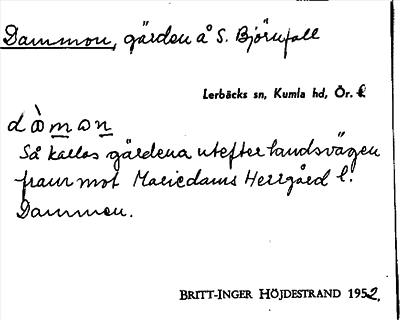 Dammon, gården å S. Björnfall
Lerbäcks sn, Kumla hd, Ör. l.
Så kallas gårdena utefter landsvägen
fram mot Mariedams Herrgård l.
Dammen.
BRITT-INGER HÖJDESTRAND 1952.